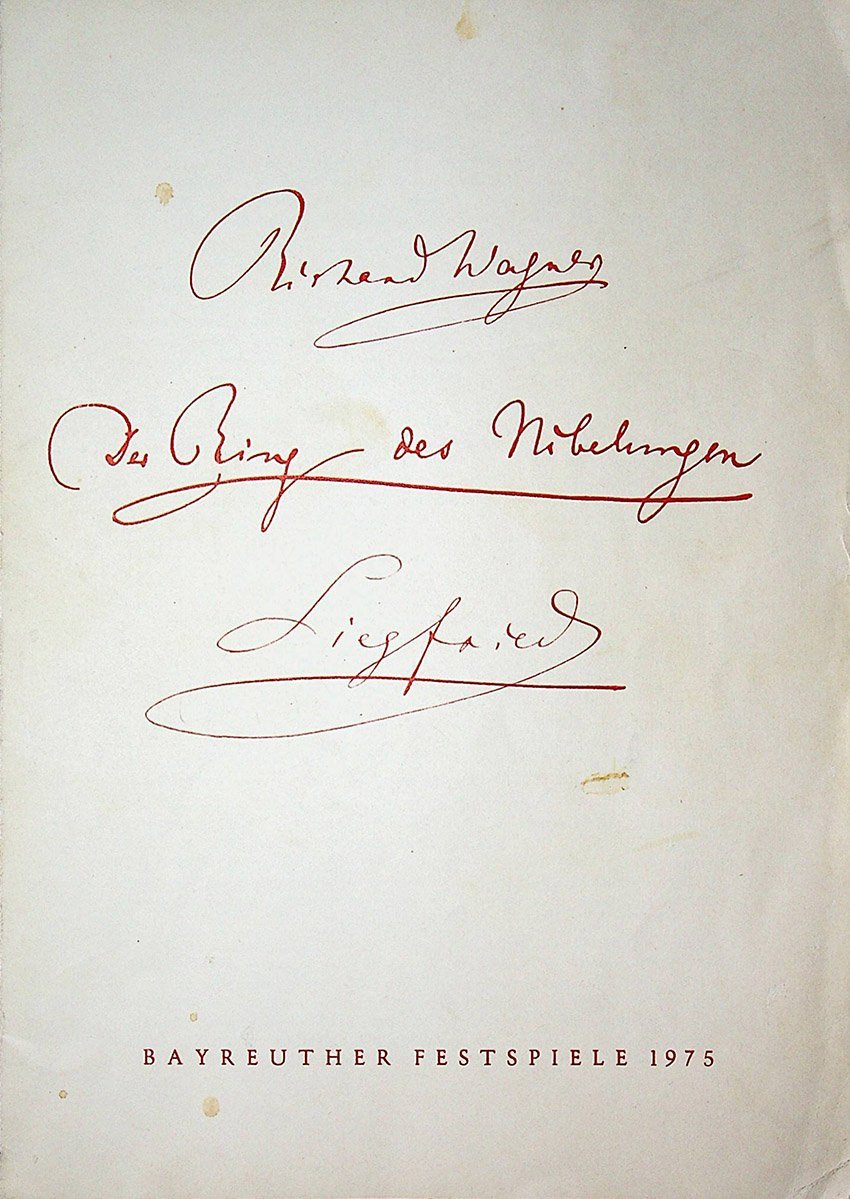 Richard Wagner
Der Ring des Nibelungen
Siegfried
BAYREUTHER FESTSPIELE 1975